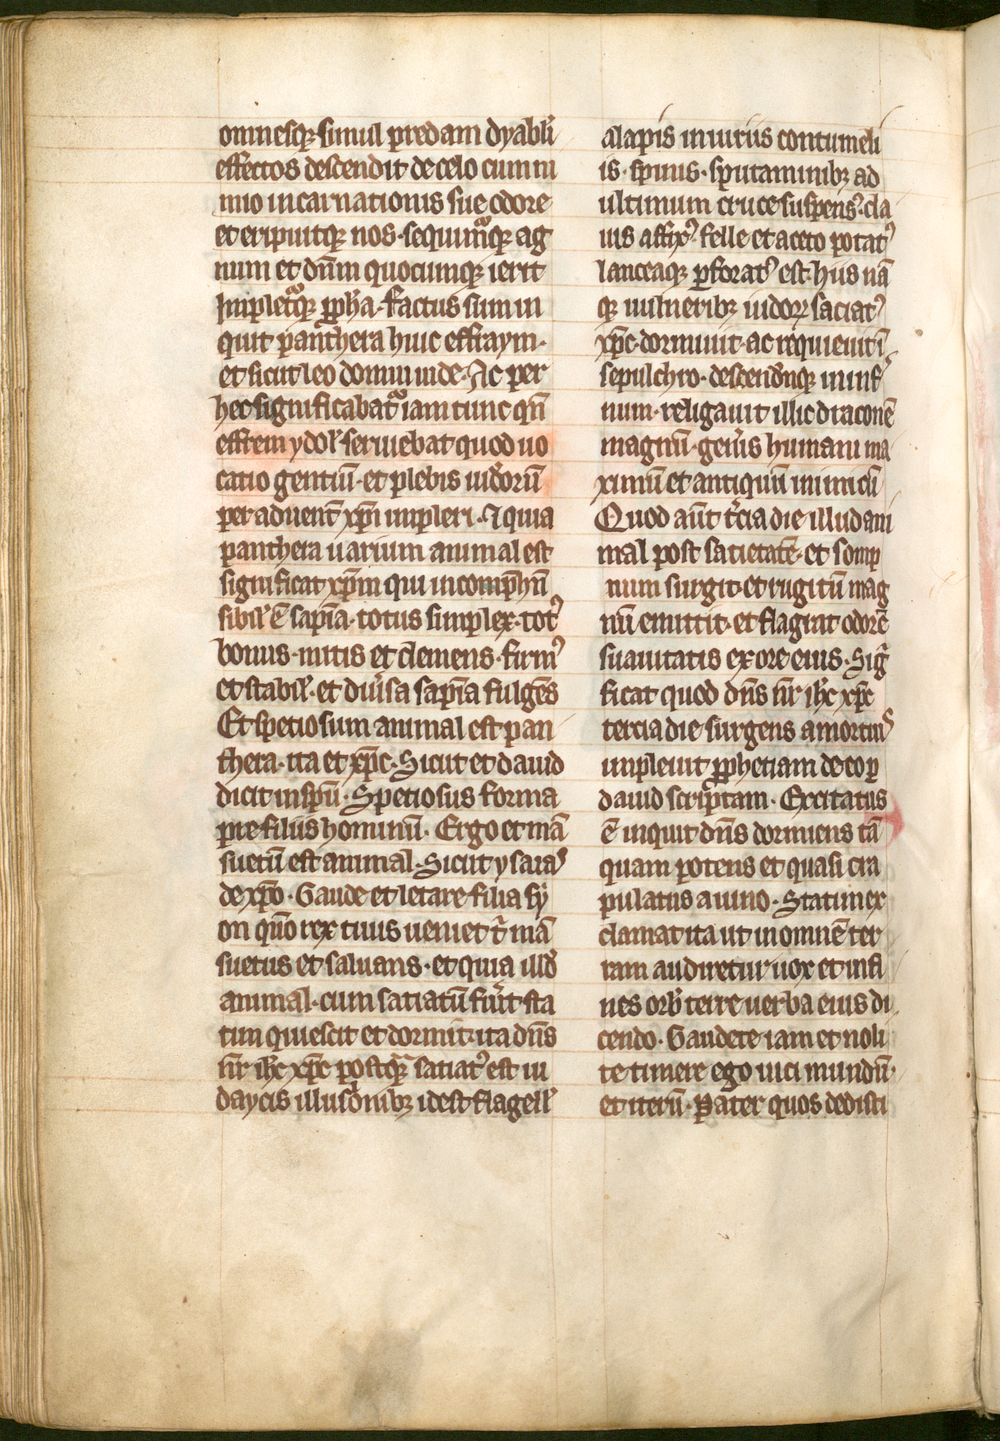 omnesq; simul predam dyabli
effectos descendit de celo cum ni
mio incarnationis sue odore
et eripuitq; nos· sequim̃q; ag
num et dñm quocumq; ierit
Impletq; ꝓph̃a· factus sum in
quit panthera huic effraym·
et sicut leo domui iude· Ac per
hec significabat̃ iam tunc qñ
effrem ydol' seruiebat quod uo
catio gentiũ· et plebis iudeorũ
per aduent̃ xp̃i impleri· Et quia
panthera uarium animal est
significat xp̃m qui incomp̃hñ
sibil' ẽ sapĩa· totus simplex· totꝰ
bonus· mitis et clemens· firmꝰ
et stabil'· et diũsa sapĩa fulgẽs
Et spetiosum animal est pan
thera· ita et xp̃c· Sicut et dauid
dicit in spũ· Spetiosus forma
pre filiis hominũ· Ergo et mã
suetũ est animal· Sicut ysaias
de xp̃o· Gaude et letare filia sy
on qm̃o rex tuus ueniet t̃ mã
suetus et saluans· et quia illđ
animal· cum satiatũ fũit sta
tim quiescit et dormit· ita dñs
ñr ih̃c xp̃c postq̃ satiatꝰ est iu
daycis illusionibꝫ idest flagell'
alapis iniuriis contumeli
is· spinis· sputaminibꝫ ad
ultimum cruce suspensꝰ· cla
uis affixꝰ· felle et aceto potatꝰ
lanceaq; ꝑforatꝰ est· hiis nã
q; uulneribꝫ iudeoꝝ saciatꝰ
xp̃c· dormiuit· ac requieuit ĩ
sepulchro· descenditq; in inf'
num· religauit illic draconẽ
magnũ· geñis humani ma
ximũ et antiquũ inimicũ
Quod aũt t̃cia die illud ani
mal post satietatẽ· et somp
num surgit· et rugitũ mag
nũ emittit· et flagrat odorẽ
suauitatis ex ore eius· Sig̃
ficat quod dñs ñr ih̃c xp̃c
tercia die surgens a mortuis
impleuit ꝓphetiam de eo ꝑ
dauid scriptam· Excitatus
ẽ inquit dñs dormiens tã
quam potens et quasi cra
pulatus a uino· Statim ex
clamat ita ut in omnẽ ter
ram audiretur uox et in fi
nes orb' terre uerba eius di
cendo· Gaudete iam et noli
te timere ego uici mundũ·
et iterũ· Pater quos dedisti